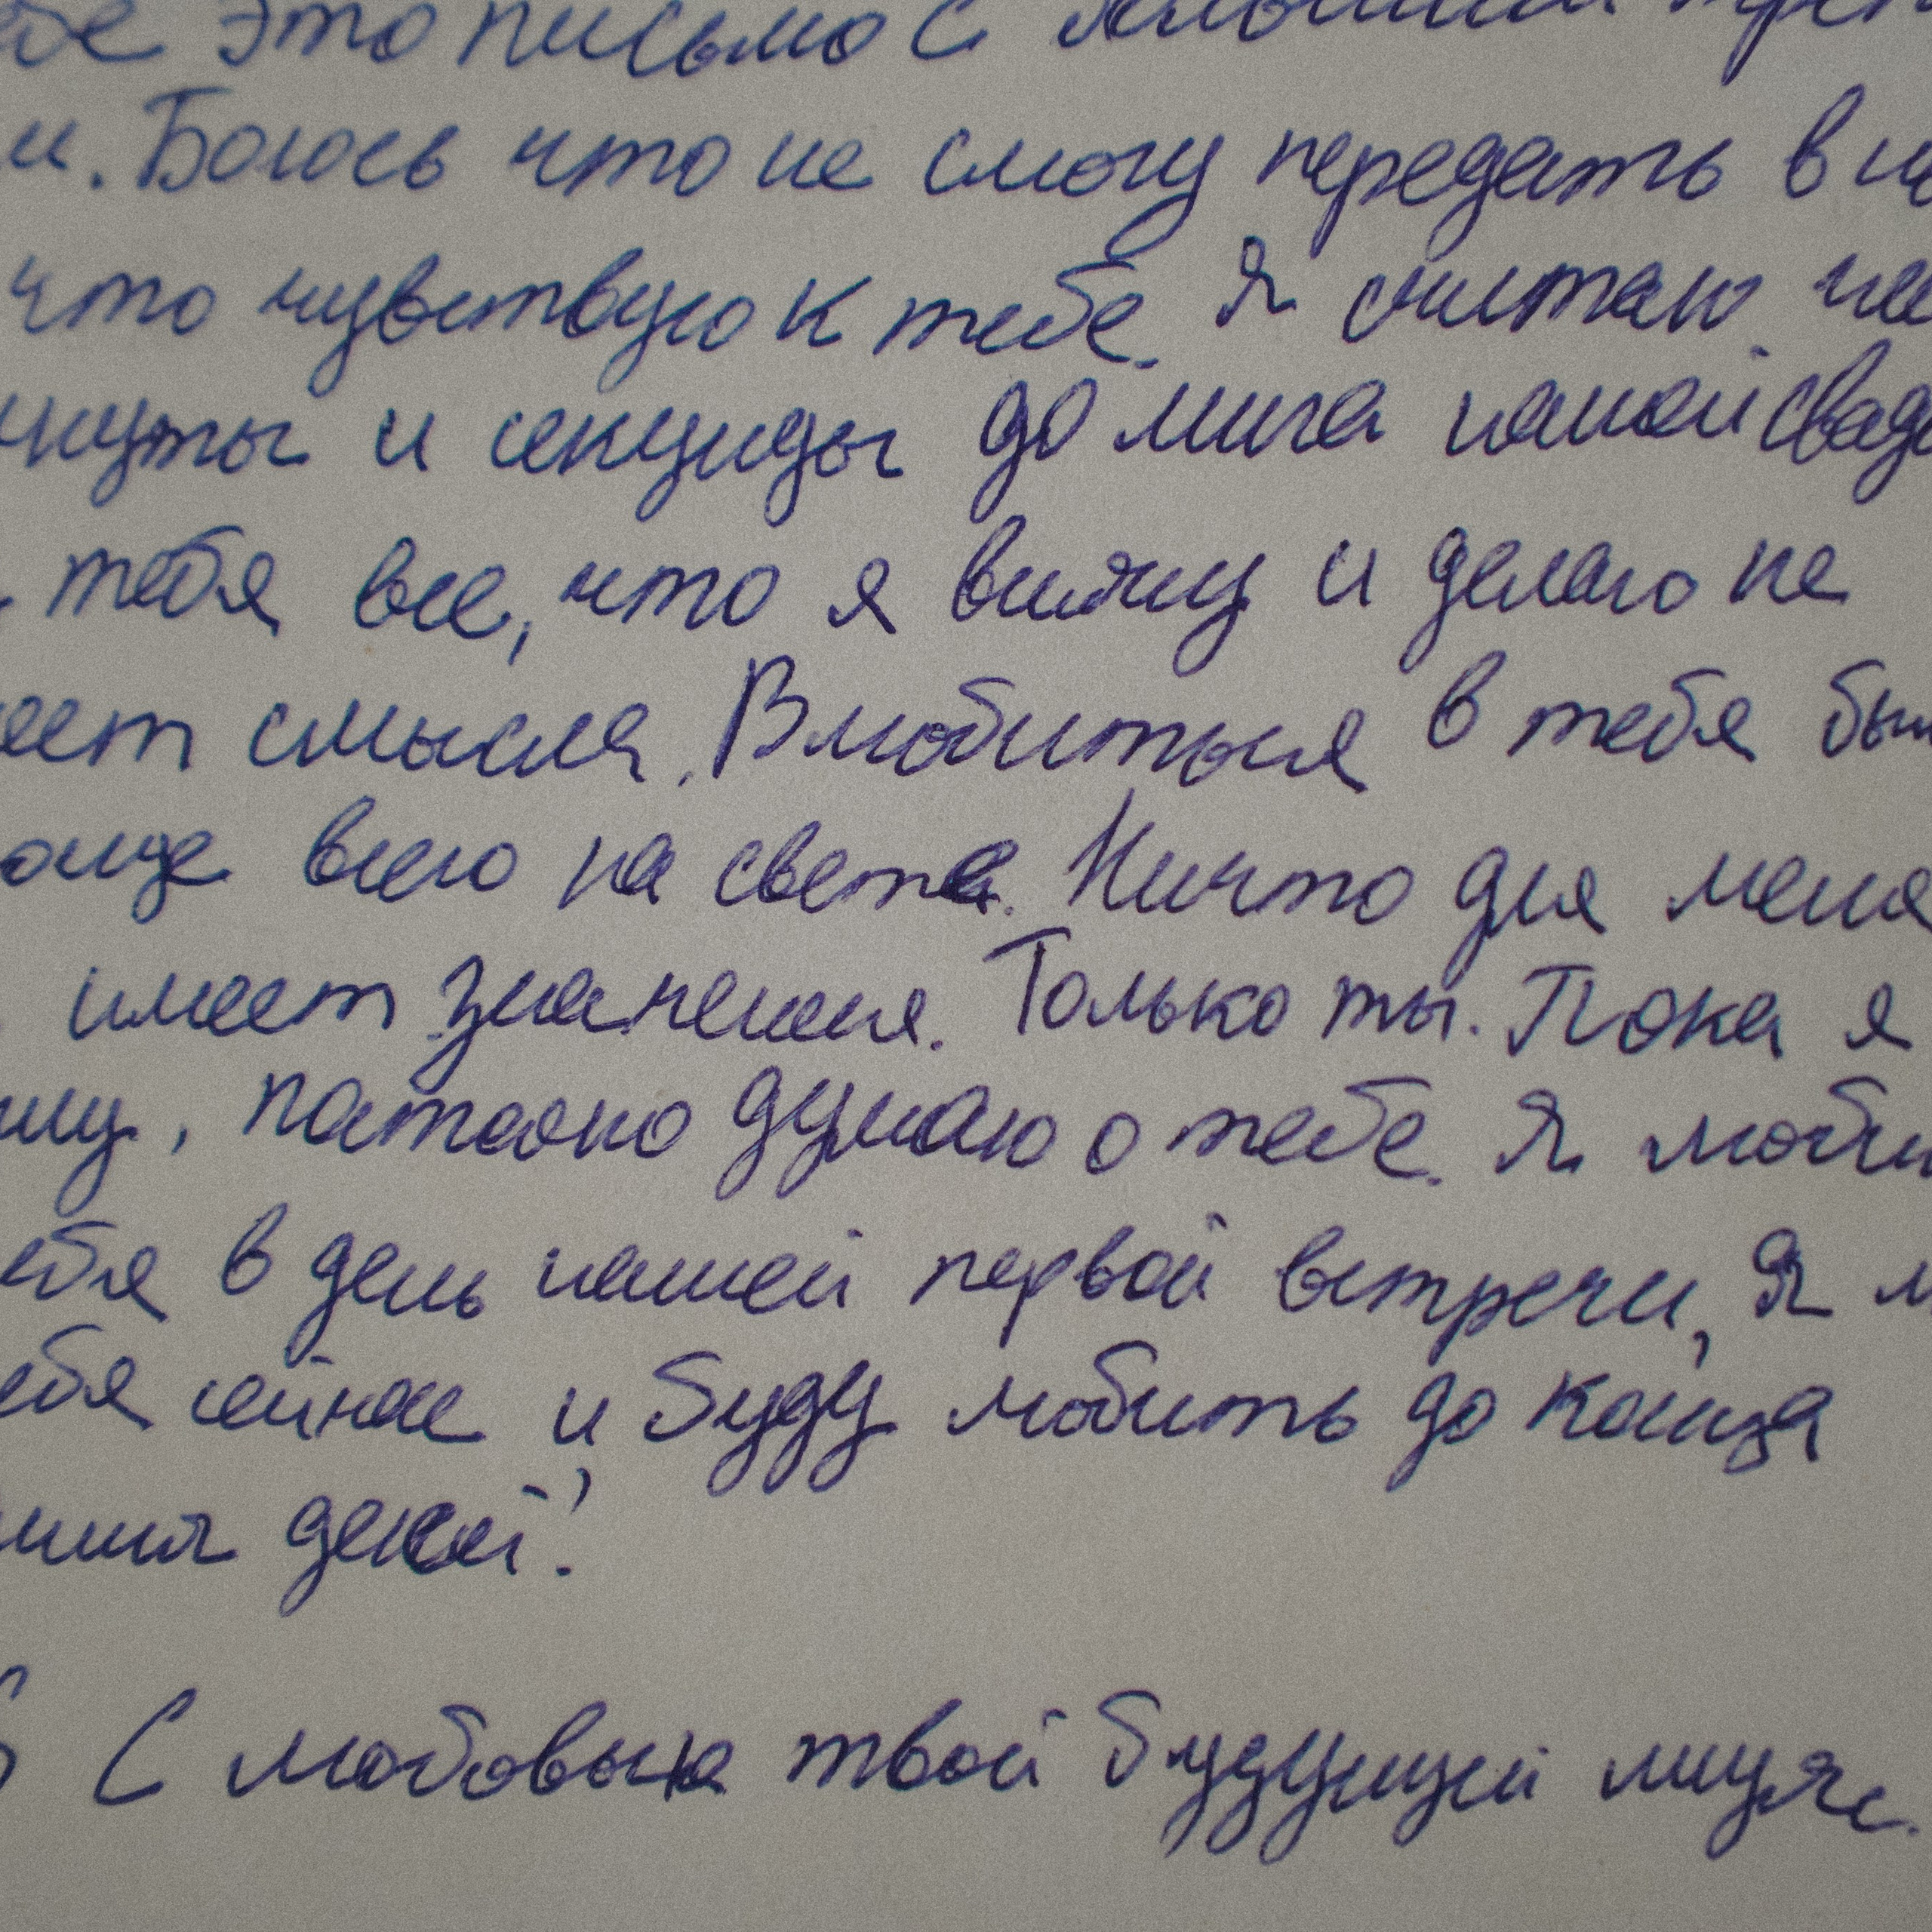 это письмо с
Боюсь что не смогу передать в
что чувствую к тебе. Я считаю
и секунды до мига нашей
тебя все, что я вижу и делаю не
смысла. Влюбиться в тебя
всего на свете. Ничто для меня
имеет значения. Только ты. Пока я
думаю о тебе. Я
в день нашей первой встречи, Я
сейчас и буду любить до конца
дней!
С любовью твой будущий муж.